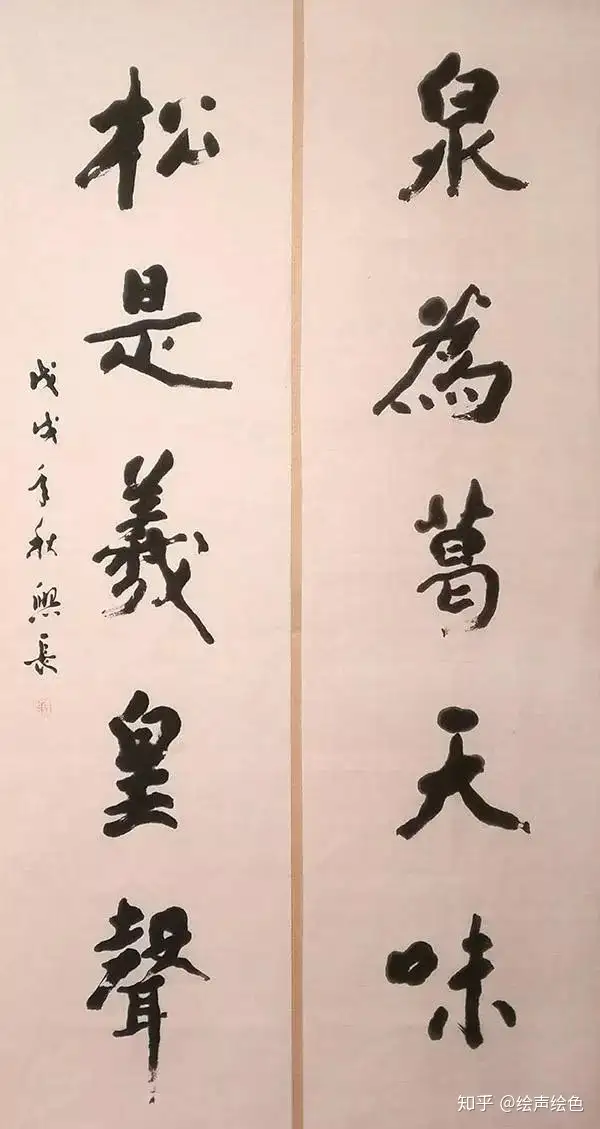 泉為葛天味
松是羲皇聲
戊戌年秋熙長
知乎 @绘声绘色